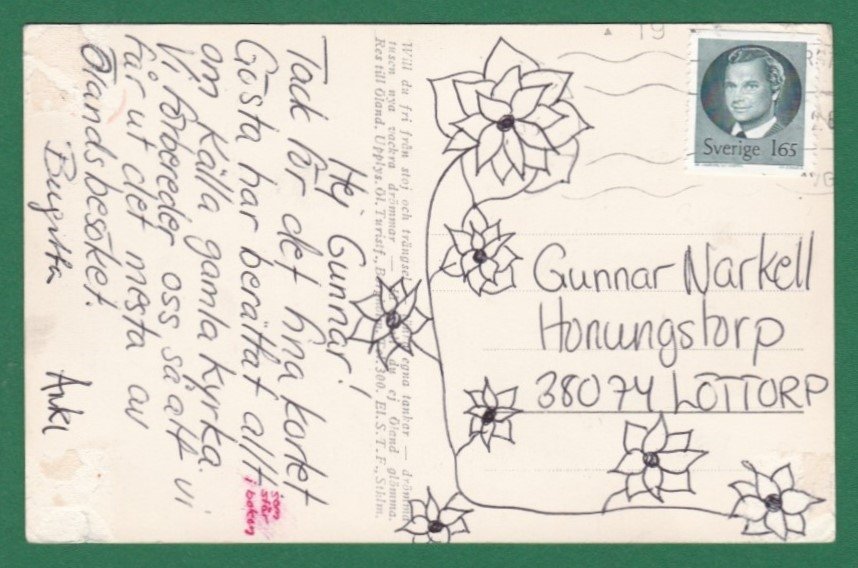 Hej Gunnar!
Tack för det fina kortet
Gösta har berättat allt
som
står
i boken
om Källa gamla kyrka.
Vi förbereder oss så att vi
får ut det mesta av
Ölandsbesöket.
Birgitta Anki
Vill du fri från stoj och trängsel egna tankar — drömma
tusen nya vackra drömmar — du ej Öland glömma.
Res till Öland. Upplys. Öl. Turistf., 300. El. S. T. F., Sthlm.
19
Sverige 165
Gunnar Narkell
Honungstorp
38074 LÖTTORP